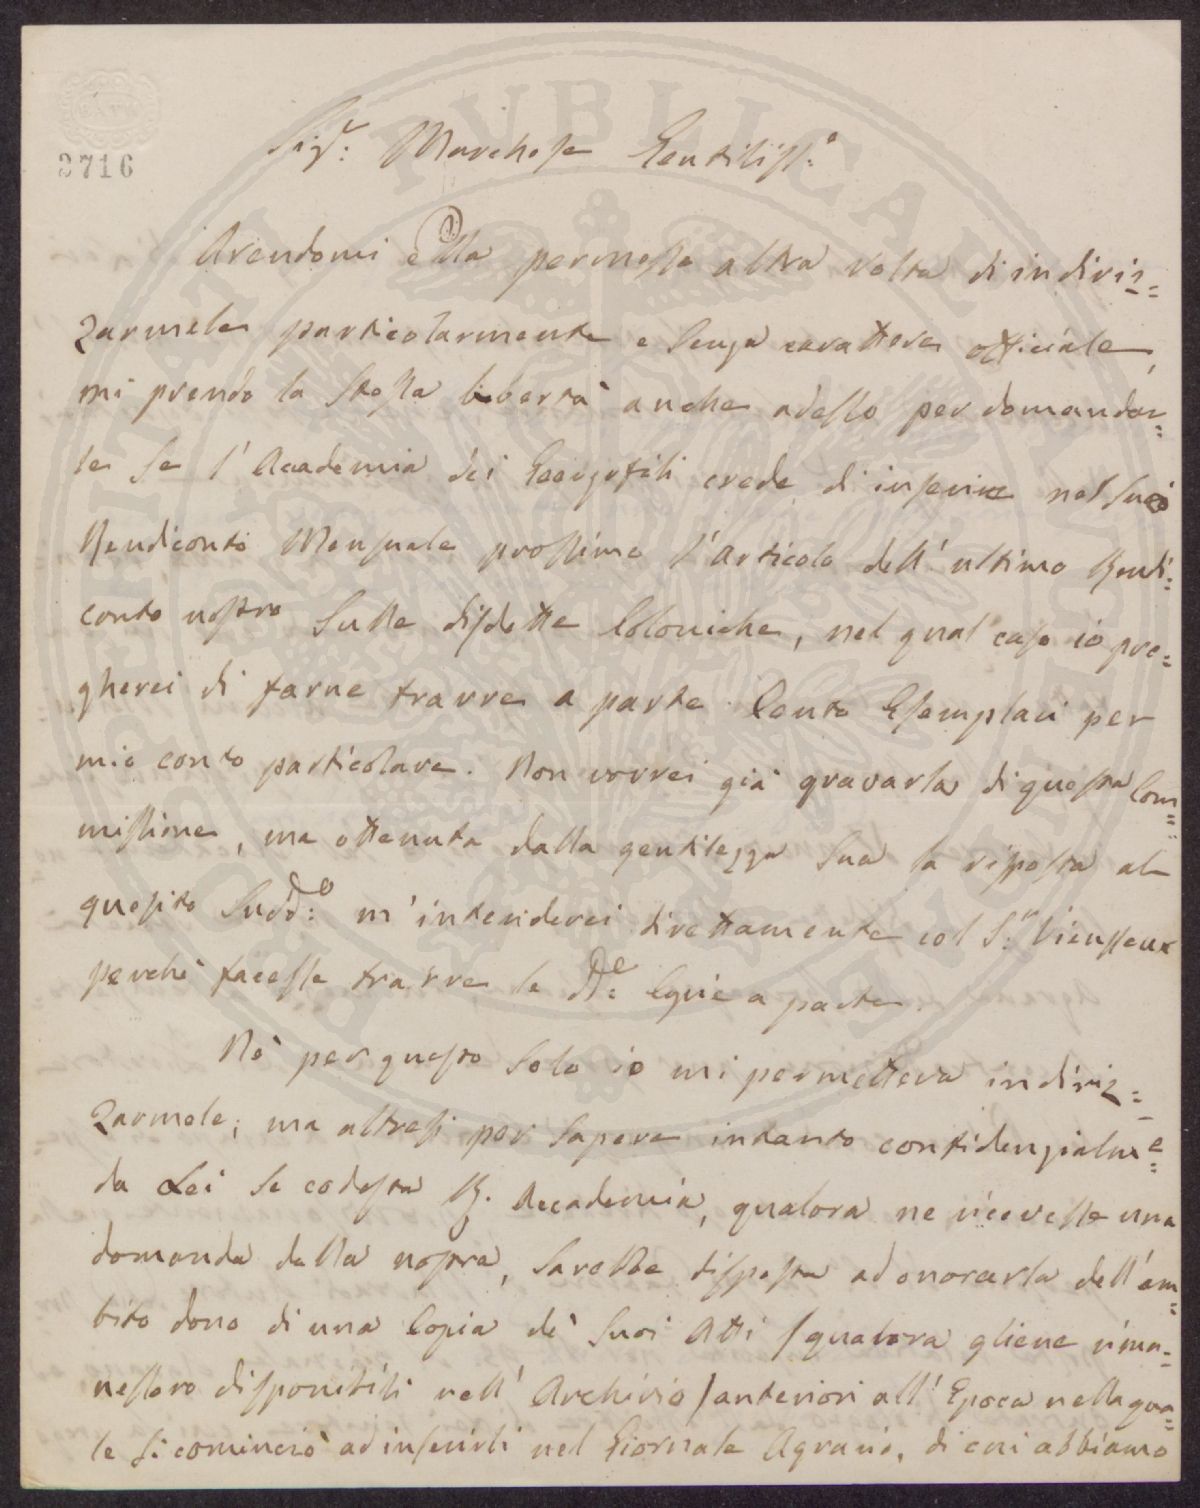 2716
Sig.r Marchese Gentiliss.o
Avendomi Ella permesso altra volta di indiriz=
zarmele particolarmente e senza carattere officiale,
mi prendo la stessa libertà anche adesso per domandar=
le se l'Accademia dei Georgofili crede di inserire nel suo
Rendiconto Mensuale prossimo l'articolo dell'ultimo Rendi=
conto nostro sulle disdette Coloniche, nel qual caso io pre=
gherei di farne trarre a parte Cento Esemplari per
mio conto particolare. Non vorrei già gravarla di questa Com=
missione, ma ottenuta dalla gentilezza Sua la risposta al
quesito Sudd.o m'intenderei direttamente col S.r Vieusseux
perchè facesse trarre le dd.e Copie a parte.
Nè per questo solo io mi permetteva indiriz=
zarmele; ma altresì per sapere intanto confidenzialm.e
da Lei se codesta R. Accademia, qualora ne ricevesse una
domanda dalla nostra, sarebbe disposta ad onorarla dell'am=
bito dono di una Copia de' suoi Atti /qualora gliene rima=
nessero disponibili nell'Archivio/ anteriori all'Epoca nella qua=
le si cominciò ad inserirli nel Giornale Agrario, di cui abbiamo